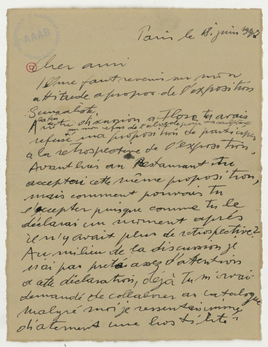 AAAB
Paris le 18 juin 1942
Cher ami
il me faut revenir sur mon
attitude à propos de l'exposition
Autre changion à Flore tu avais
refusé ma proposition de participer
à la retrospective de l'exposition
Avant hier au Restaurant tu
acceptais cette même proposition,
mais comment pouvais tu
accepter puisque comme tu le
déclarais un moment après
il n'y avait plus de retrospective?
Au milieu de la discussion je
n'ai pas prêté assez d'attention
à cette déclaration, déjà tu m'avais
demandé de collaborer au catalogue
malgré moi je ressentais immé
diatement une hostilité